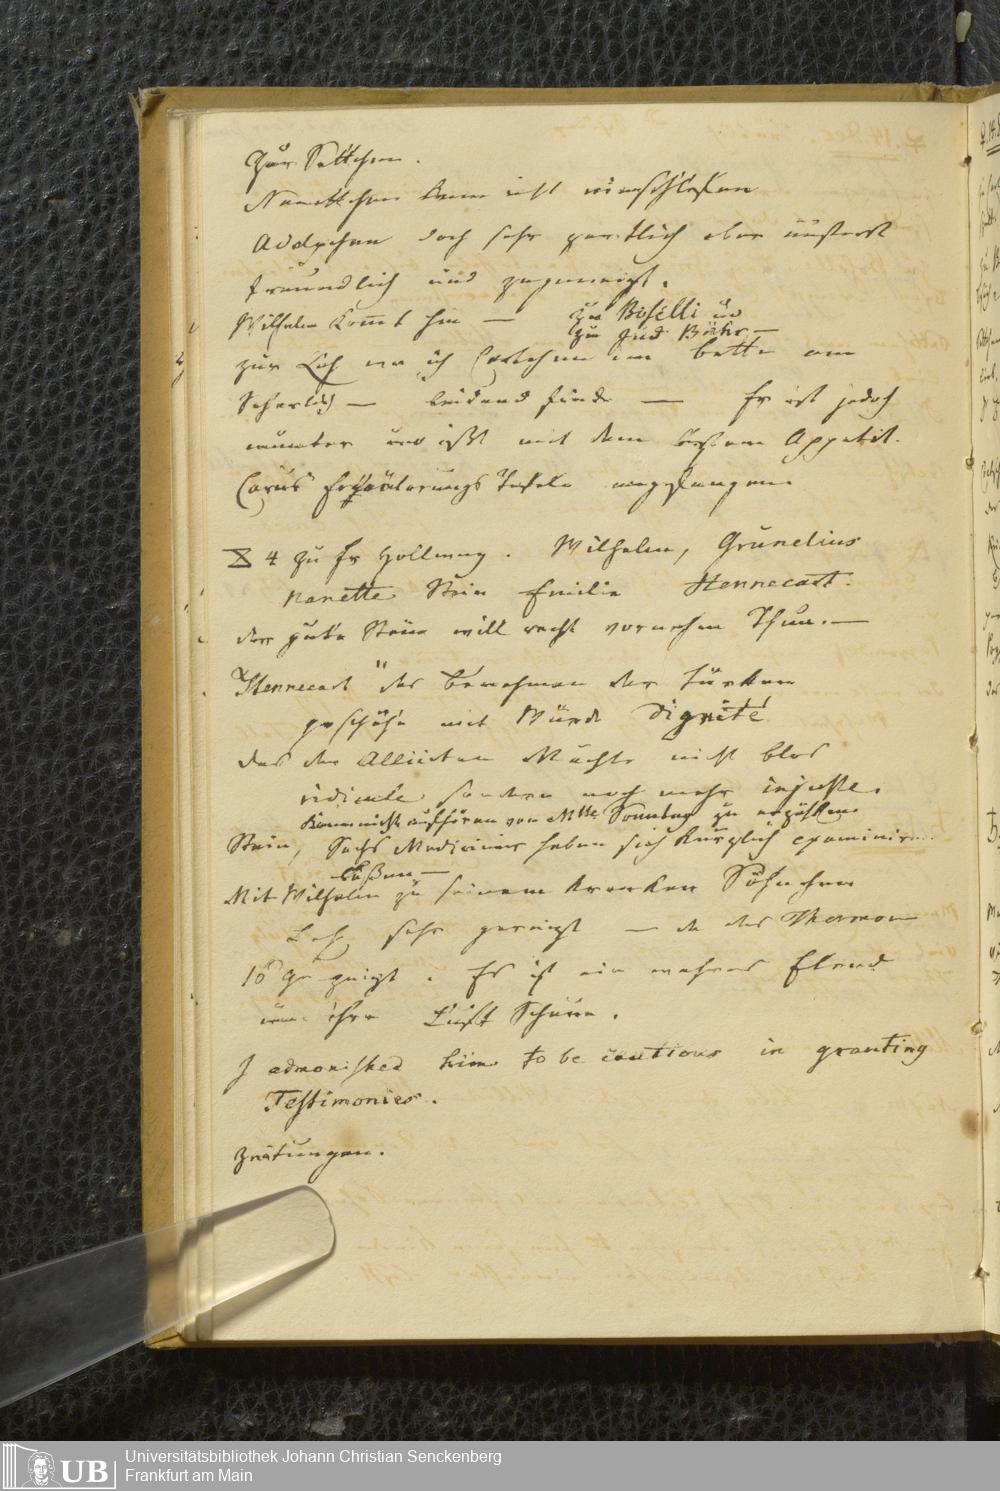 Zur Settchen.
Nanettchen kann nicht einschlafen
Adolphen doch sehr zärtlich aber äußerst
freundlich und zugeneigt.
Wilhelm kommt hin — zu Boselli und
zu Jud Böhr —
zur Loh wo ich Carlchen im Bette am
Scharlach — leidend finde — Er ist jedoch
munter und ißt mit dem besten Appetit.
Carus Erläuterungs Tafeln angefangen
4 zu Fr Hollweg. Wilhelm, Grunelius
Nanette Stein Emilie Hennecart.
der gute Stein will recht vornehm Thun. —
Hennecart "das Benehmen der Türken
geschähe mit Würde Dignité
das der Alliirten Mächte nicht blos
ridicule sondern noch mehr injuste.
Kann nicht aufhören von Mlle Sonntag zu erzählen
Stein, Sechs Mediciner haben sich kürzlich examiniren
laßen —
Mit Wilhelm zu seinem kranken Söhnchen
sehr gereizt — da das Thermom
18 Gr zeigt. Es ist ein wahres Elend
um ihre Luft Scheue.
I admonished him to be cautious in granting
Testimonies.
Zeitungen.
Universitätsbibliothek Johann Christian Senckenberg
Frankfurt am Main
UB